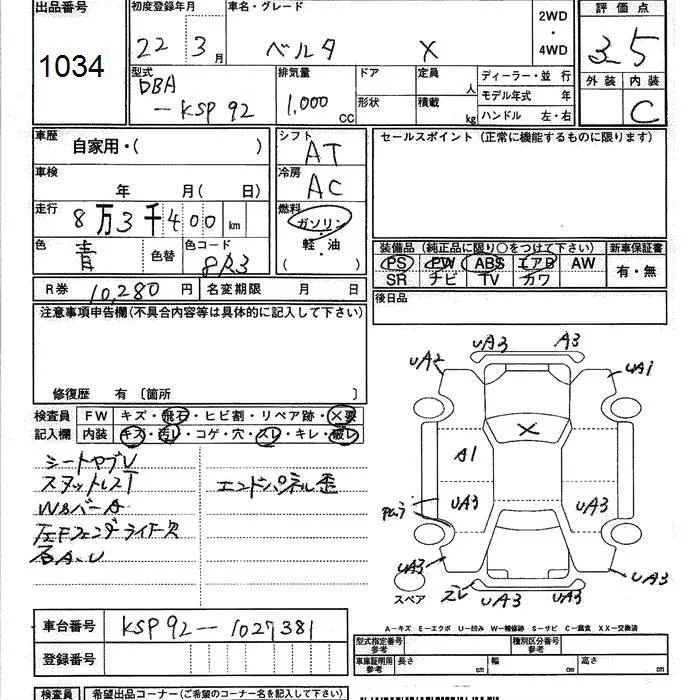 出品番号
1034
初度登録年月
22 3月
車名・グレード
ベルタ X
2WD
・
4WD
評価点
3.5
外装 内装
C
型式
DBA
-KSP92
排気量
1,000 CC
ドア
形状
定員 人
積載 kg
ディーラー・並 行
モデル年式 年
ハンドル 左・右
車歴
自家用・( )
車検
年 月( 日)
走行
8万3千400 km
色
青
色替
色コード
8R3
シフト
AT
冷房
AC
燃料
ガソリン
・
軽・油
( )
セールスポイント(正常に機能するものに限ります)
装備品(純正品に限り○をつけて下さい) 新車保証書
PS PW ABS エアB AW
SR ナビ TV カワ
有・無
R券 10,280円 名変期限 月 日
後日品
注意事項申告欄(不具合内容等は具体的に記入して下さい)
修復歴 有〔箇所 〕
検査員 FW キズ・飛石・ヒビ割・リペア跡・X要
記入欄 内装 キズ・汚レ・コゲ・穴・スレ・キレ・破レ
シートヤブレ
エンドパネル歪
W8バーA
左Fフェンダーライナー欠
UA3 A3
UA2 UA1
X
A1
UA3 UA3
UA3 UA3
UA3 UA3
スペア
A-キズ E-エクボ U-凹み W-補修跡 S-サビ C-腐食 XX-交換済
車台番号 KSP92-1027381
登録番号
型式指定番号
参考
種別区分番号
参考
車庫証明用
参考
長さ cm 幅 cm 高さ cm
検査員 希望出品コーナー(ご希望のコーナー名を記入下さい)